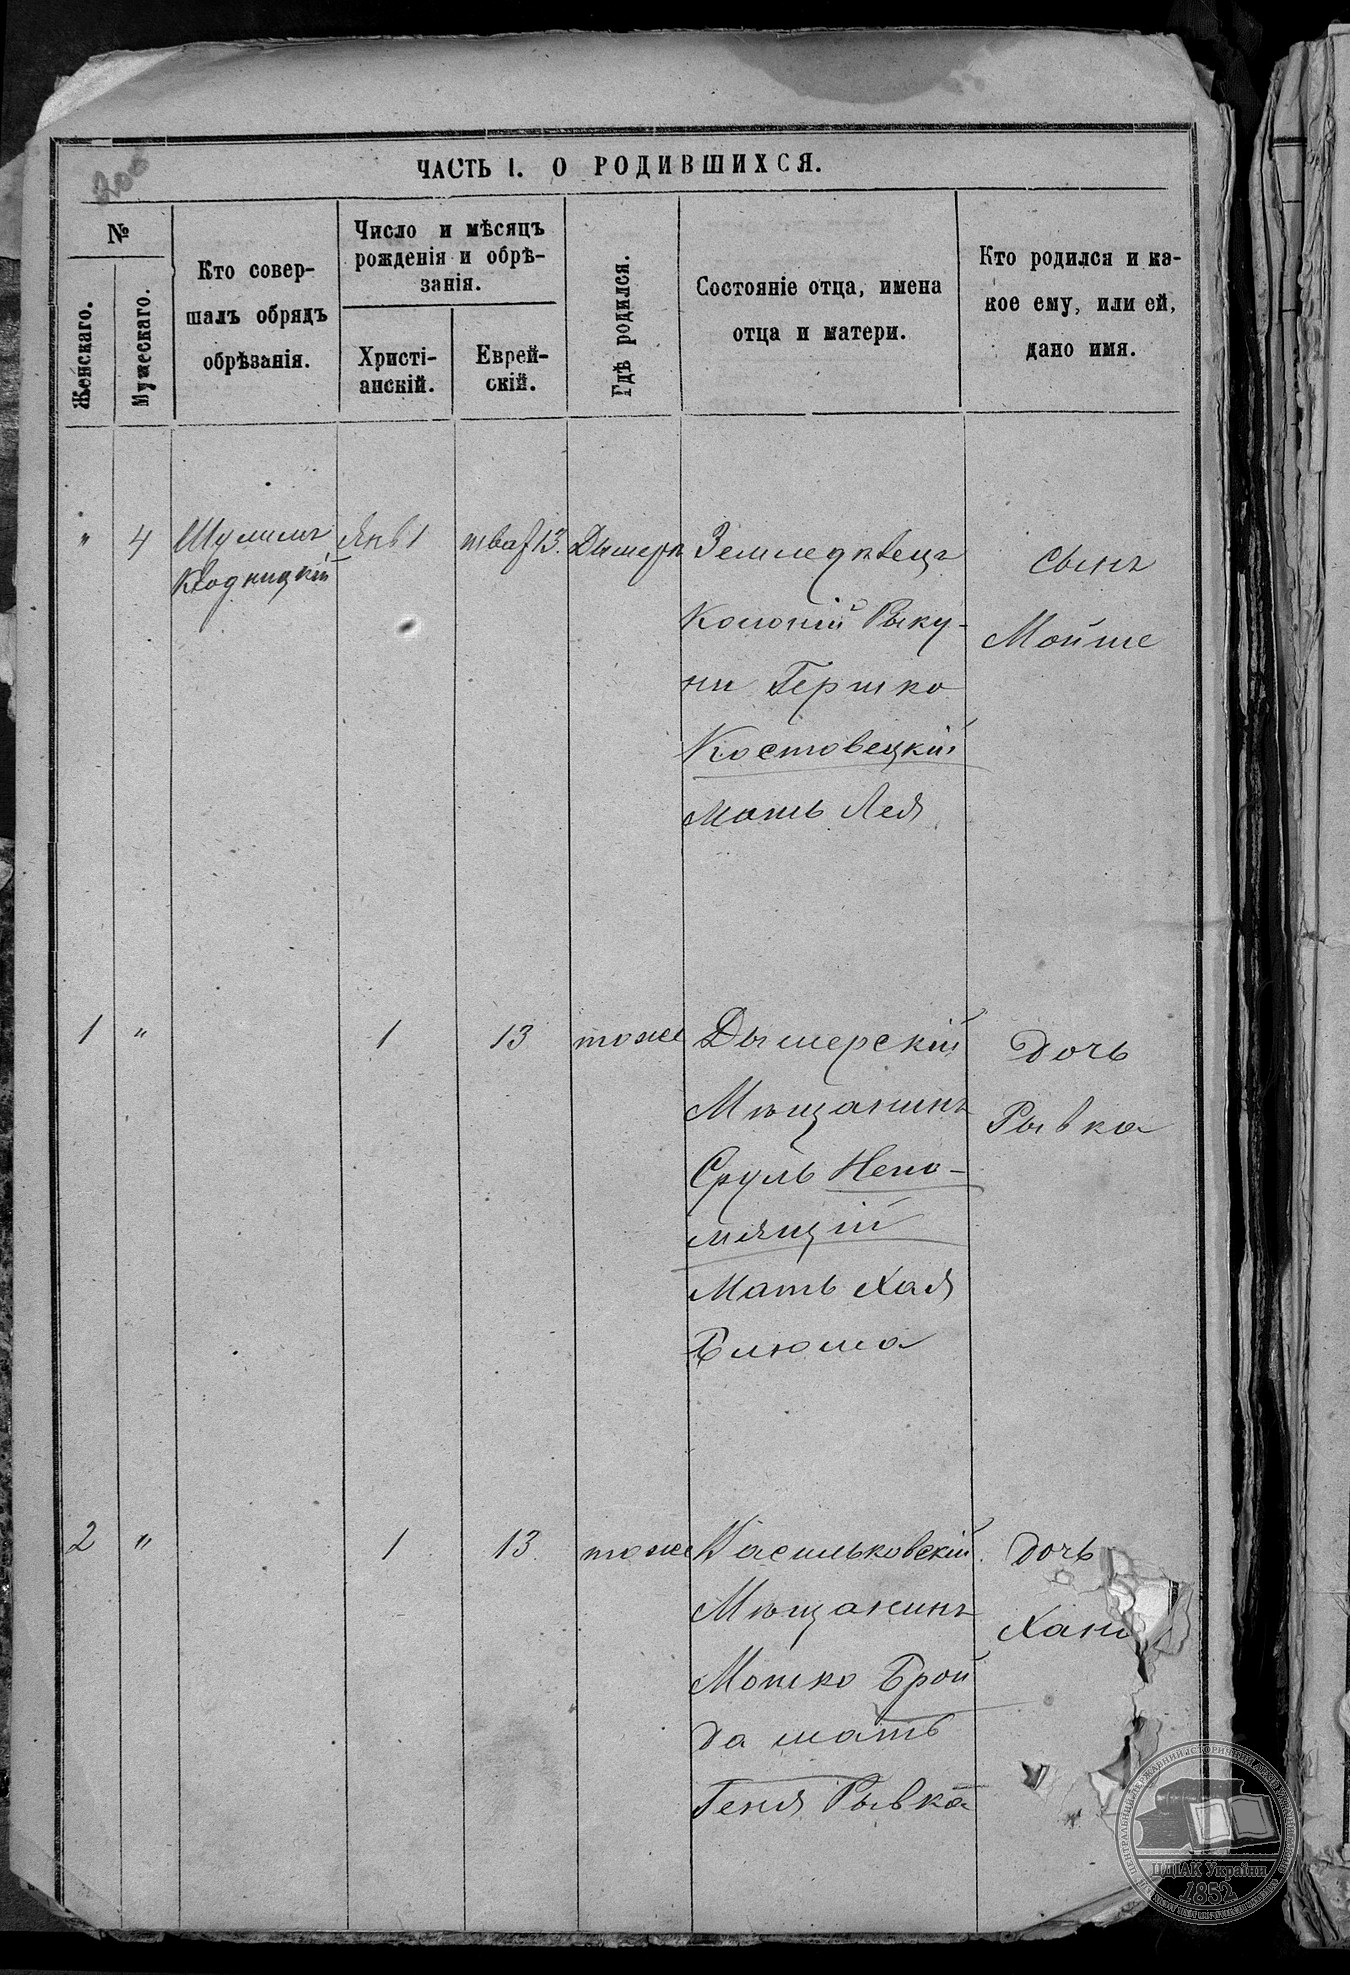 ЧАСТЬ I. О РОДИВШИХСЯ.
№
Женскаго.
Мужескаго.
Кто совер-
шалъ обрядъ
обрѣзанія.
Число и мѣсяцъ
рожденія и обрѣ-
занія.
Христі-
анскій.
Еврей-
скій.
Гдѣ родился.
Состояніе отца, имена
отца и матери.
Кто родился и ка-
кое ему, или ей,
дано имя.
" 4
Янв 1
13.
Дымеръ
Земледѣлецъ
Колоніи Рыку-
ни Гершко
Костовецкій
Мать Лея
сынъ
Мойше
1 "
1
13
тоже
Дымерскій
Мѣщанинъ
Сруль Непо-
мнящій
Мать Хая
Блюма
дочь
Рывка
2 "
1
13
тоже
Васильковскій
Мѣщанинъ
Мошко Брой
да мать
Геня Рывка
дочь
Хана
ЦДІАК України
1852